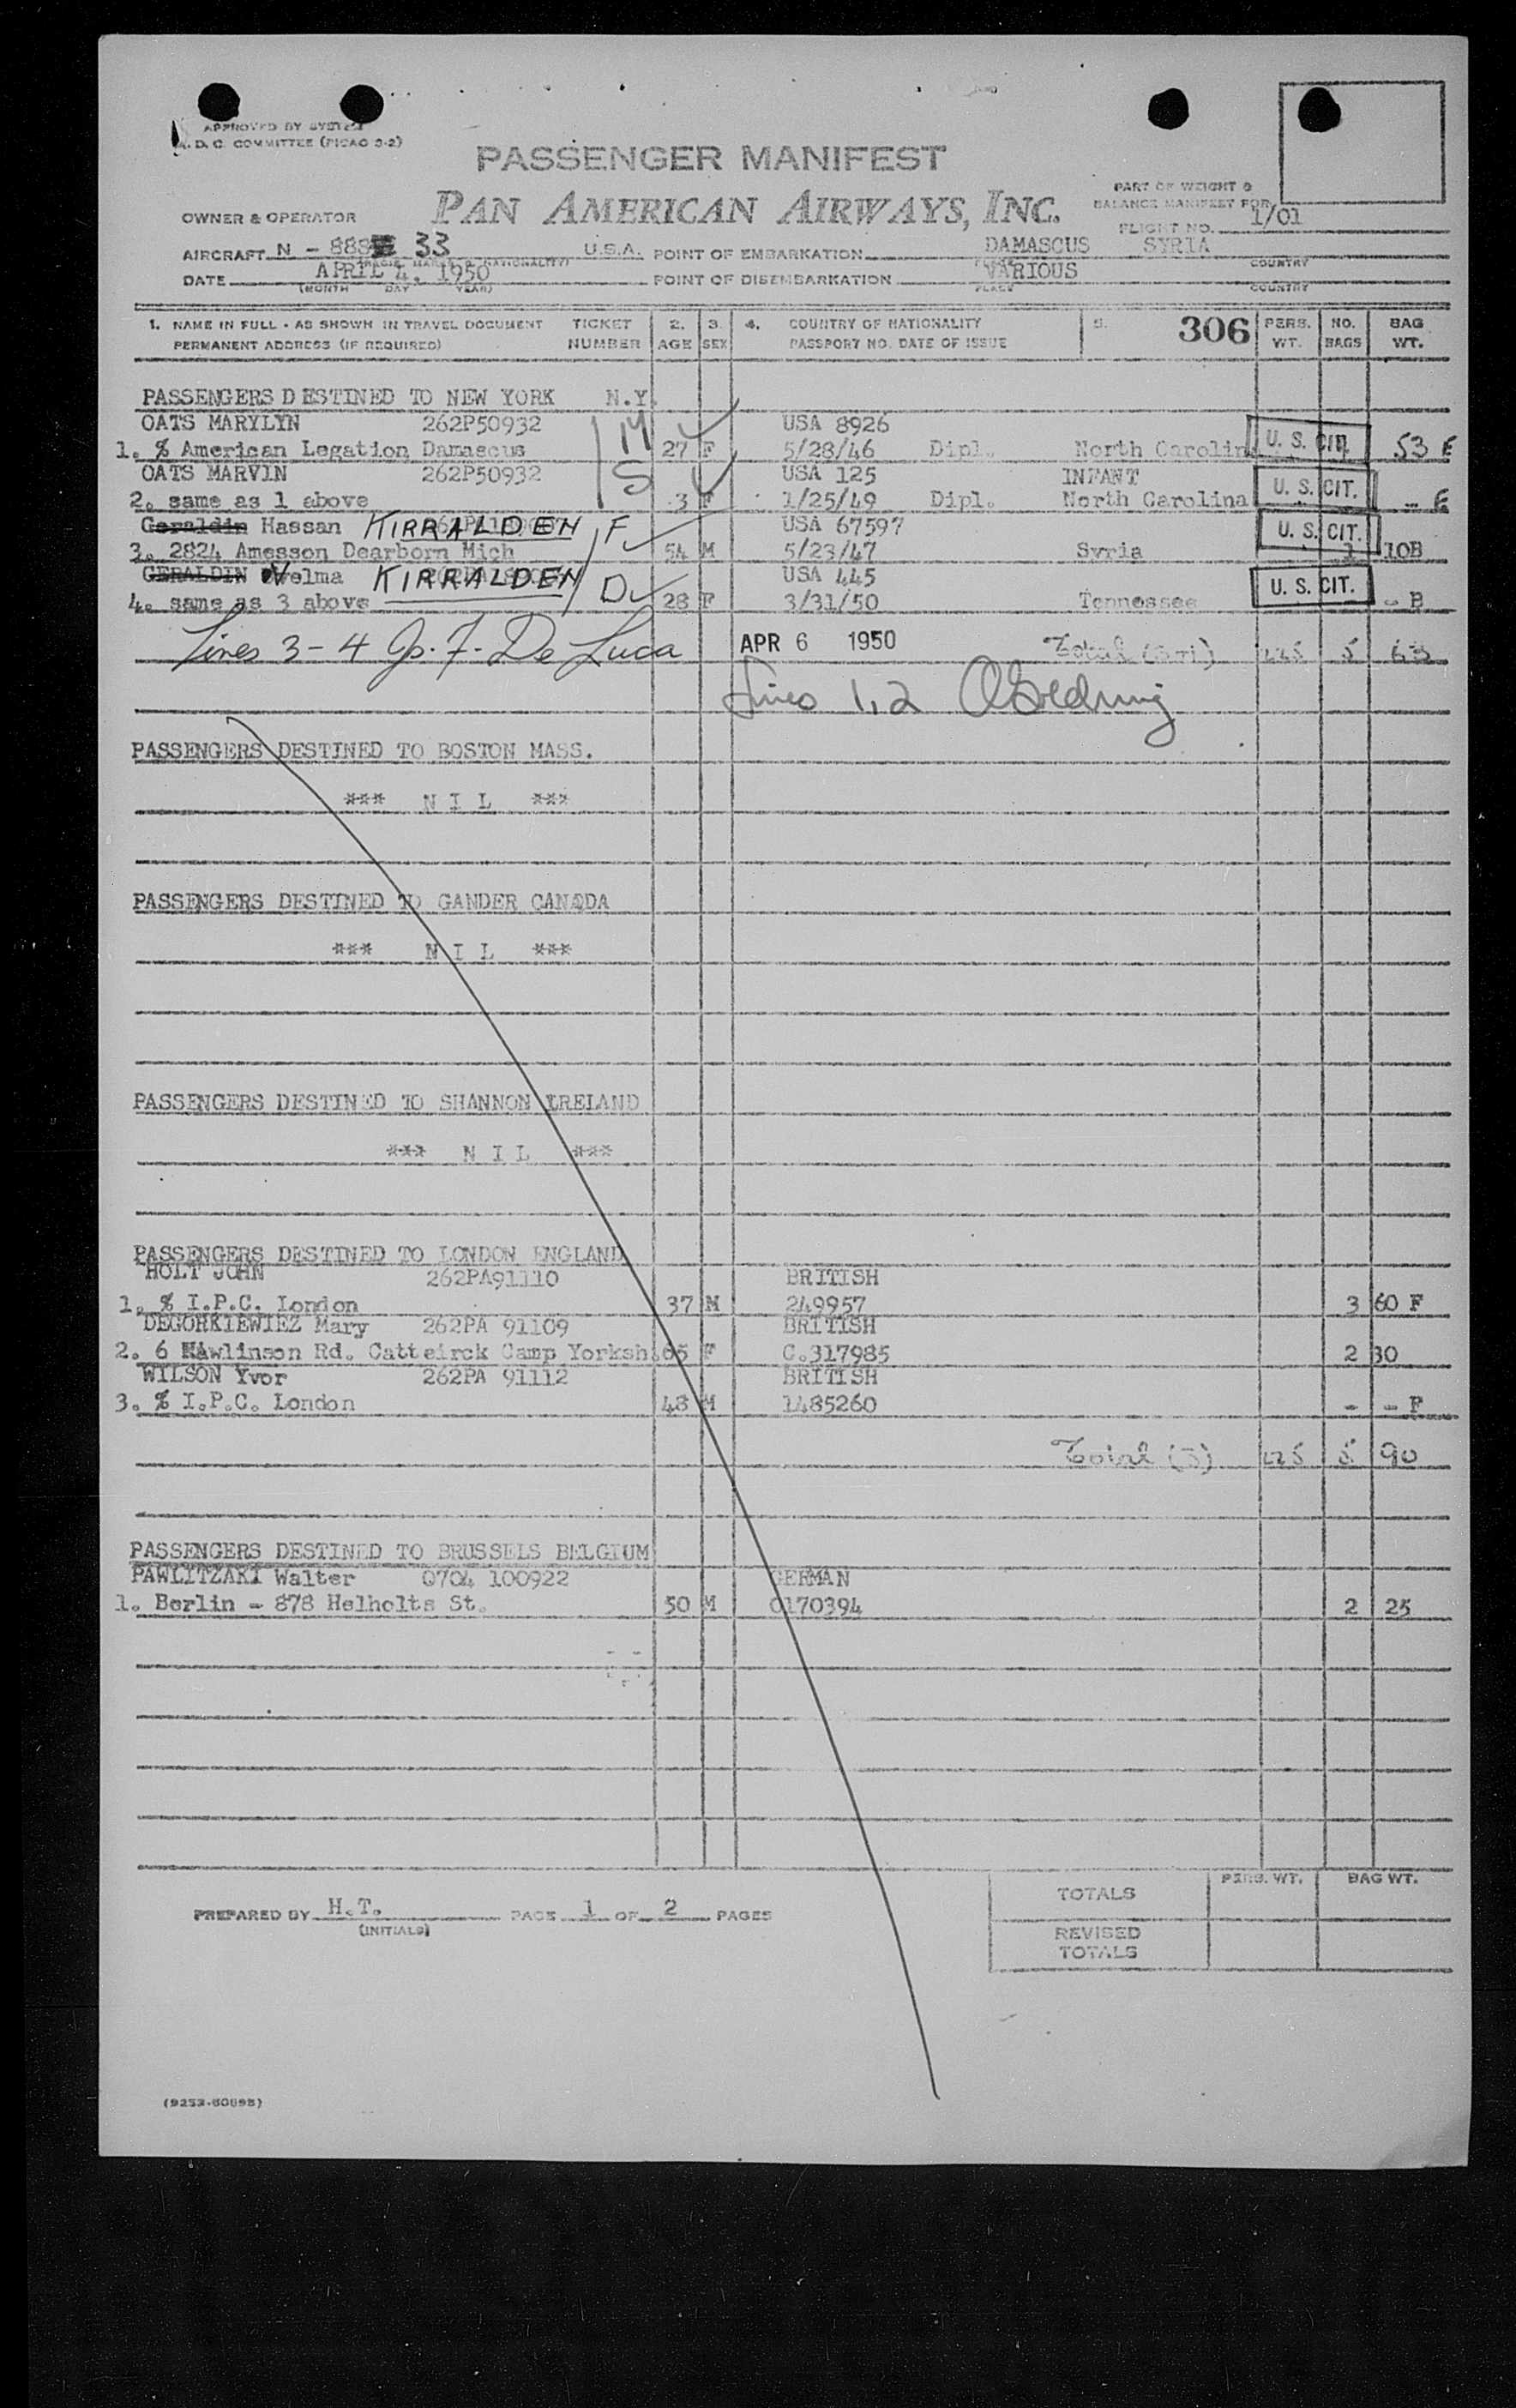 APPROVED BY SYSTEM
A. D. C. COMMITTEE (PICAO 9-2)
PASSENGER MANIFEST
PAN AMERICAN AIRWAYS, INC.
PART OF WEIGHT &
BALANCE MANIFEST FOR
FLIGHT NO. 1/01
OWNER & OPERATOR
AIRCRAFT N - 888 33 U.S.A. POINT OF EMBARKATION DAMASCUS SYRIA
PLACE COUNTRY
DATE APRIL 4, 1950 POINT OF DISEMBARKATION VARIOUS
(MONTH DAY YEAR) PLACE COUNTRY
1. NAME IN FULL - AS SHOWN IN TRAVEL DOCUMENT TICKET 2. 3. 4. COUNTRY OF NATIONALITY 5. 306 PERS. NO. BAG
PERMANENT ADDRESS (IF REQUIRED) NUMBER AGE SEX PASSPORT NO. DATE OF ISSUE WT. BAGS WT.
PASSENGERS DESTINED TO NEW YORK N.Y.
OATS MARYLYN 262P50932 M USA 8926
1. % American Legation Damascus 27 F 5/28/46 Dipl. North Carolina U. S. CIT. 53 E
OATS MARVIN 262P50932 S USA 125 INFANT
2. same as 1 above 3 F 1/25/49 Dipl. North Carolina U. S. CIT. - E
Geraldin Hassan KIRRALDEN F USA 67597
3. 2824 Amesson Dearborn Mich 54 M 5/23/47 Syria U. S. CIT. 1 10B
GERALDIN Velma KIRRALDEN D USA 445
4. same as 3 above 28 F 3/31/50 Tennessee U. S. CIT. - B
Lines 3-4 Jo. F. De Luca APR 6 1950 Total (3+1) 5 63
Lines 1,2
PASSENGERS DESTINED TO BOSTON MASS.
*** N I L ***
PASSENGERS DESTINED TO GANDER CANADA
*** N I L ***
PASSENGERS DESTINED TO SHANNON IRELAND
*** N I L ***
PASSENGERS DESTINED TO LONDON ENGLAND
HOLT JOHN 262PA91110 BRITISH
1. % I.P.C. London 37 M 249957 3 60 F
DEGORKIEWIEZ Mary 262PA 91109 BRITISH
2. 6 Rawlinson Rd. Catteirck Camp Yorksh. 65 F C.317985 2 30
WILSON Yvor 262PA 91112 BRITISH
3. % I.P.C. London 48 M 1485260 - - F
Total (3) 5 90
PASSENGERS DESTINED TO BRUSSELS BELGIUM
PAWLITZAKI Walter 0704 100922 GERMAN
1. Berlin - 878 Helholts St. 50 M 0170394 2 25
PERS. WT. BAG WT.
TOTALS
PREPARED BY H.T. PAGE 1 OF 2 PAGES
(INITIALS)
REVISED
TOTALS